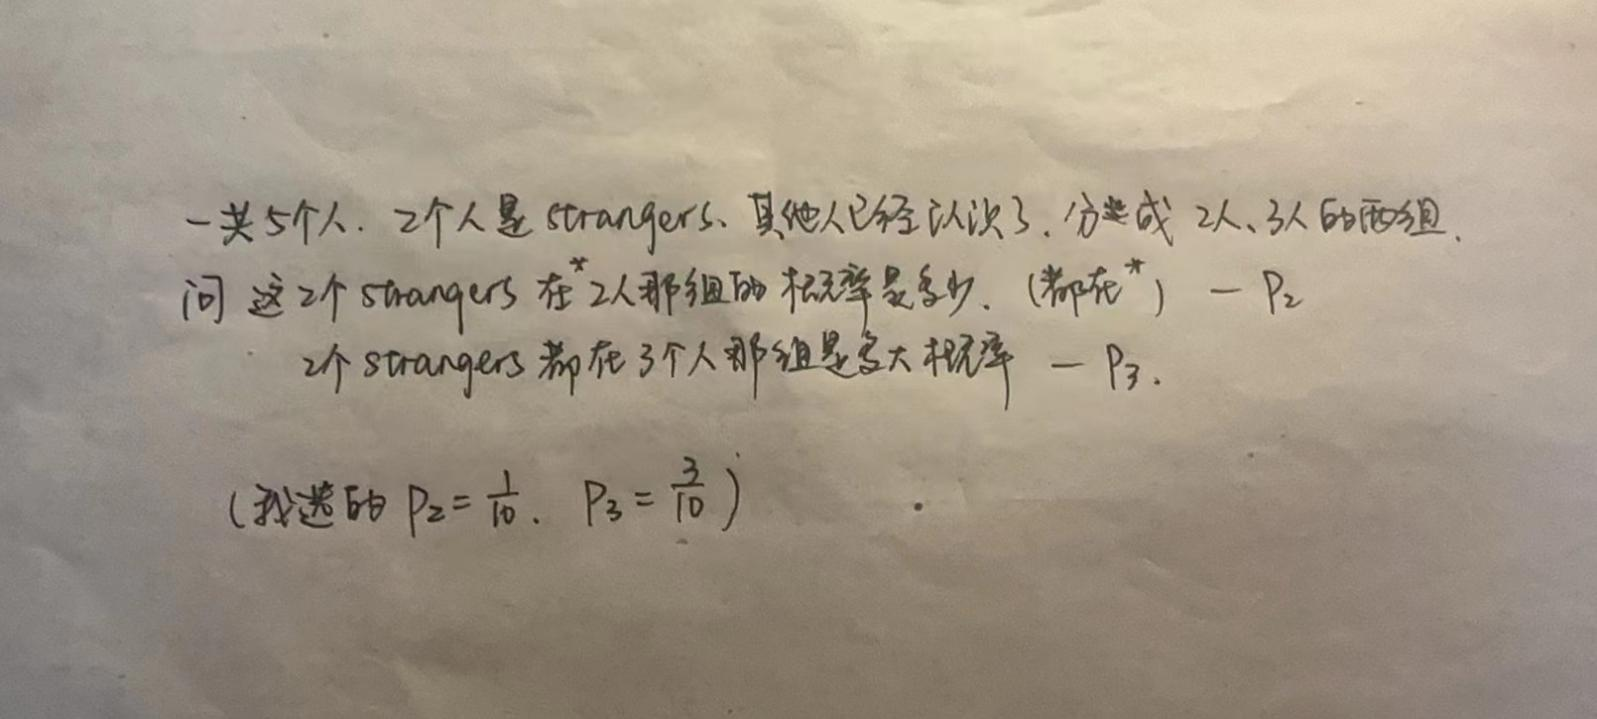 一共5个人. 2个人是strangers、其他人已经认识了. 分成 2人、3人的两组.
问 这2个strangers 在*2人那组的 概率是多少. (都在*) — P₂
2个strangers都在3个人那组是多大概率 — P₃.
(我选的 P₂=1/10. P₃=3/10)